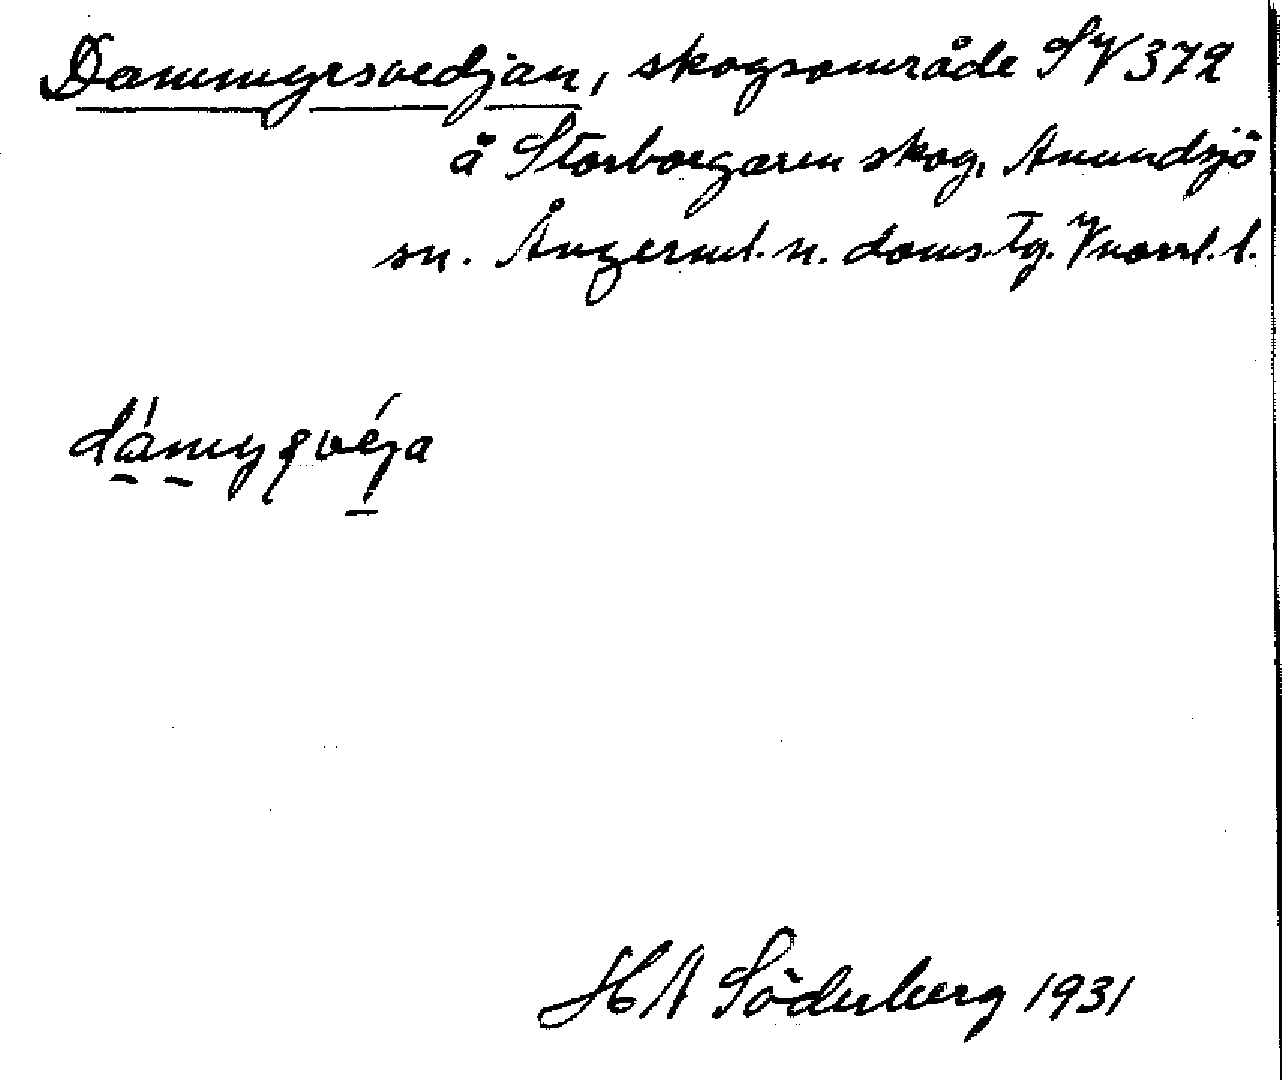 Dammyrsvedjan, skogsområde SV 372
å Storborgaren skog, Anundsjö
sn. Ångerml. n. doms.tg. Vnorrl. l.
H A Söderberg 1931